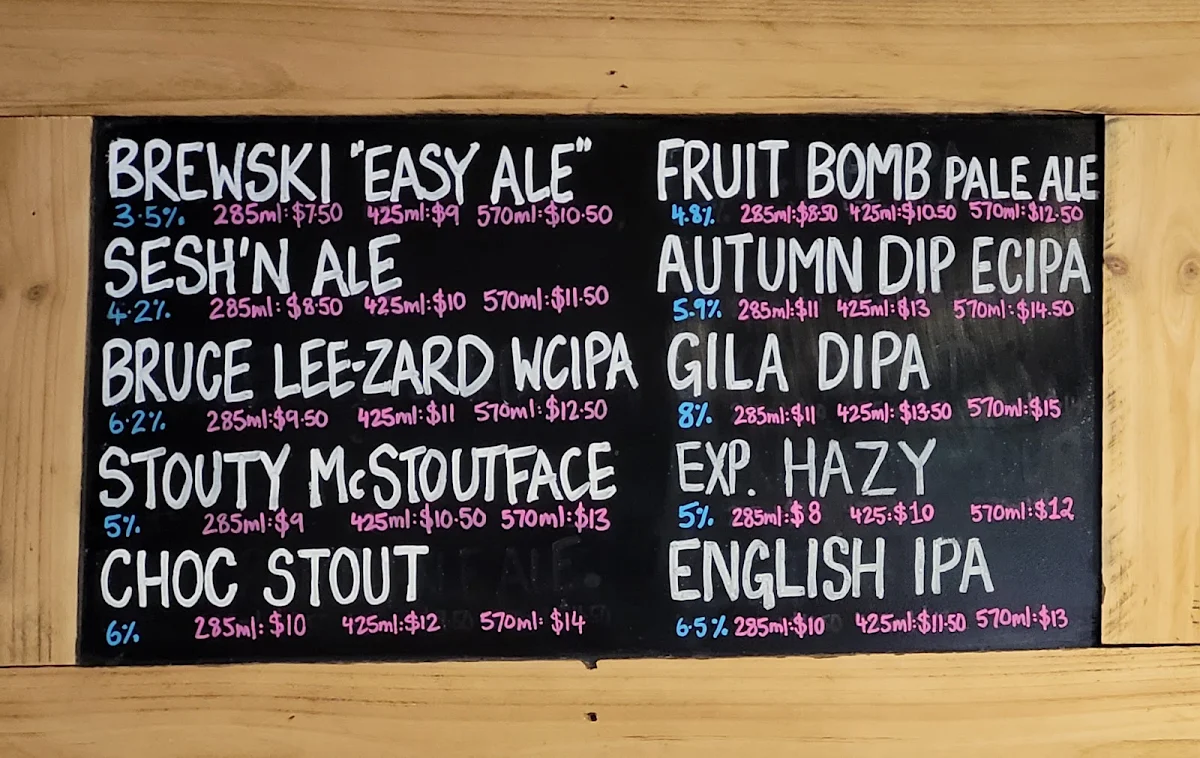 BREWSKI "EASY ALE"
3.5% 285ml:$7.50 425ml:$9 570ml:$10.50
SESH'N ALE
4.2% 285ml:$8.50 425ml:$10 570ml:$11.50
BRUCE LEE-ZARD WCIPA
6.2% 285ml:$9.50 425ml:$11 570ml:$12.50
STOUTY McSTOUTFACE
5% 285ml:$9 425ml:$10.50 570ml:$13
CHOC STOUT
6% 285ml:$10 425ml:$12 570ml:$14
FRUIT BOMB PALE ALE
4.8% 285ml:$8.50 425ml:$10.50 570ml:$12.50
AUTUMN DIP ECIPA
5.9% 285ml:$11 425ml:$13 570ml:$14.50
GILA DIPA
8% 285ml:$11 425ml:$13.50 570ml:$15
EXP. HAZY
5% 285ml:$8 425:$10 570ml:$12
ENGLISH IPA
6.5% 285ml:$10 425ml:$11.50 570ml:$13